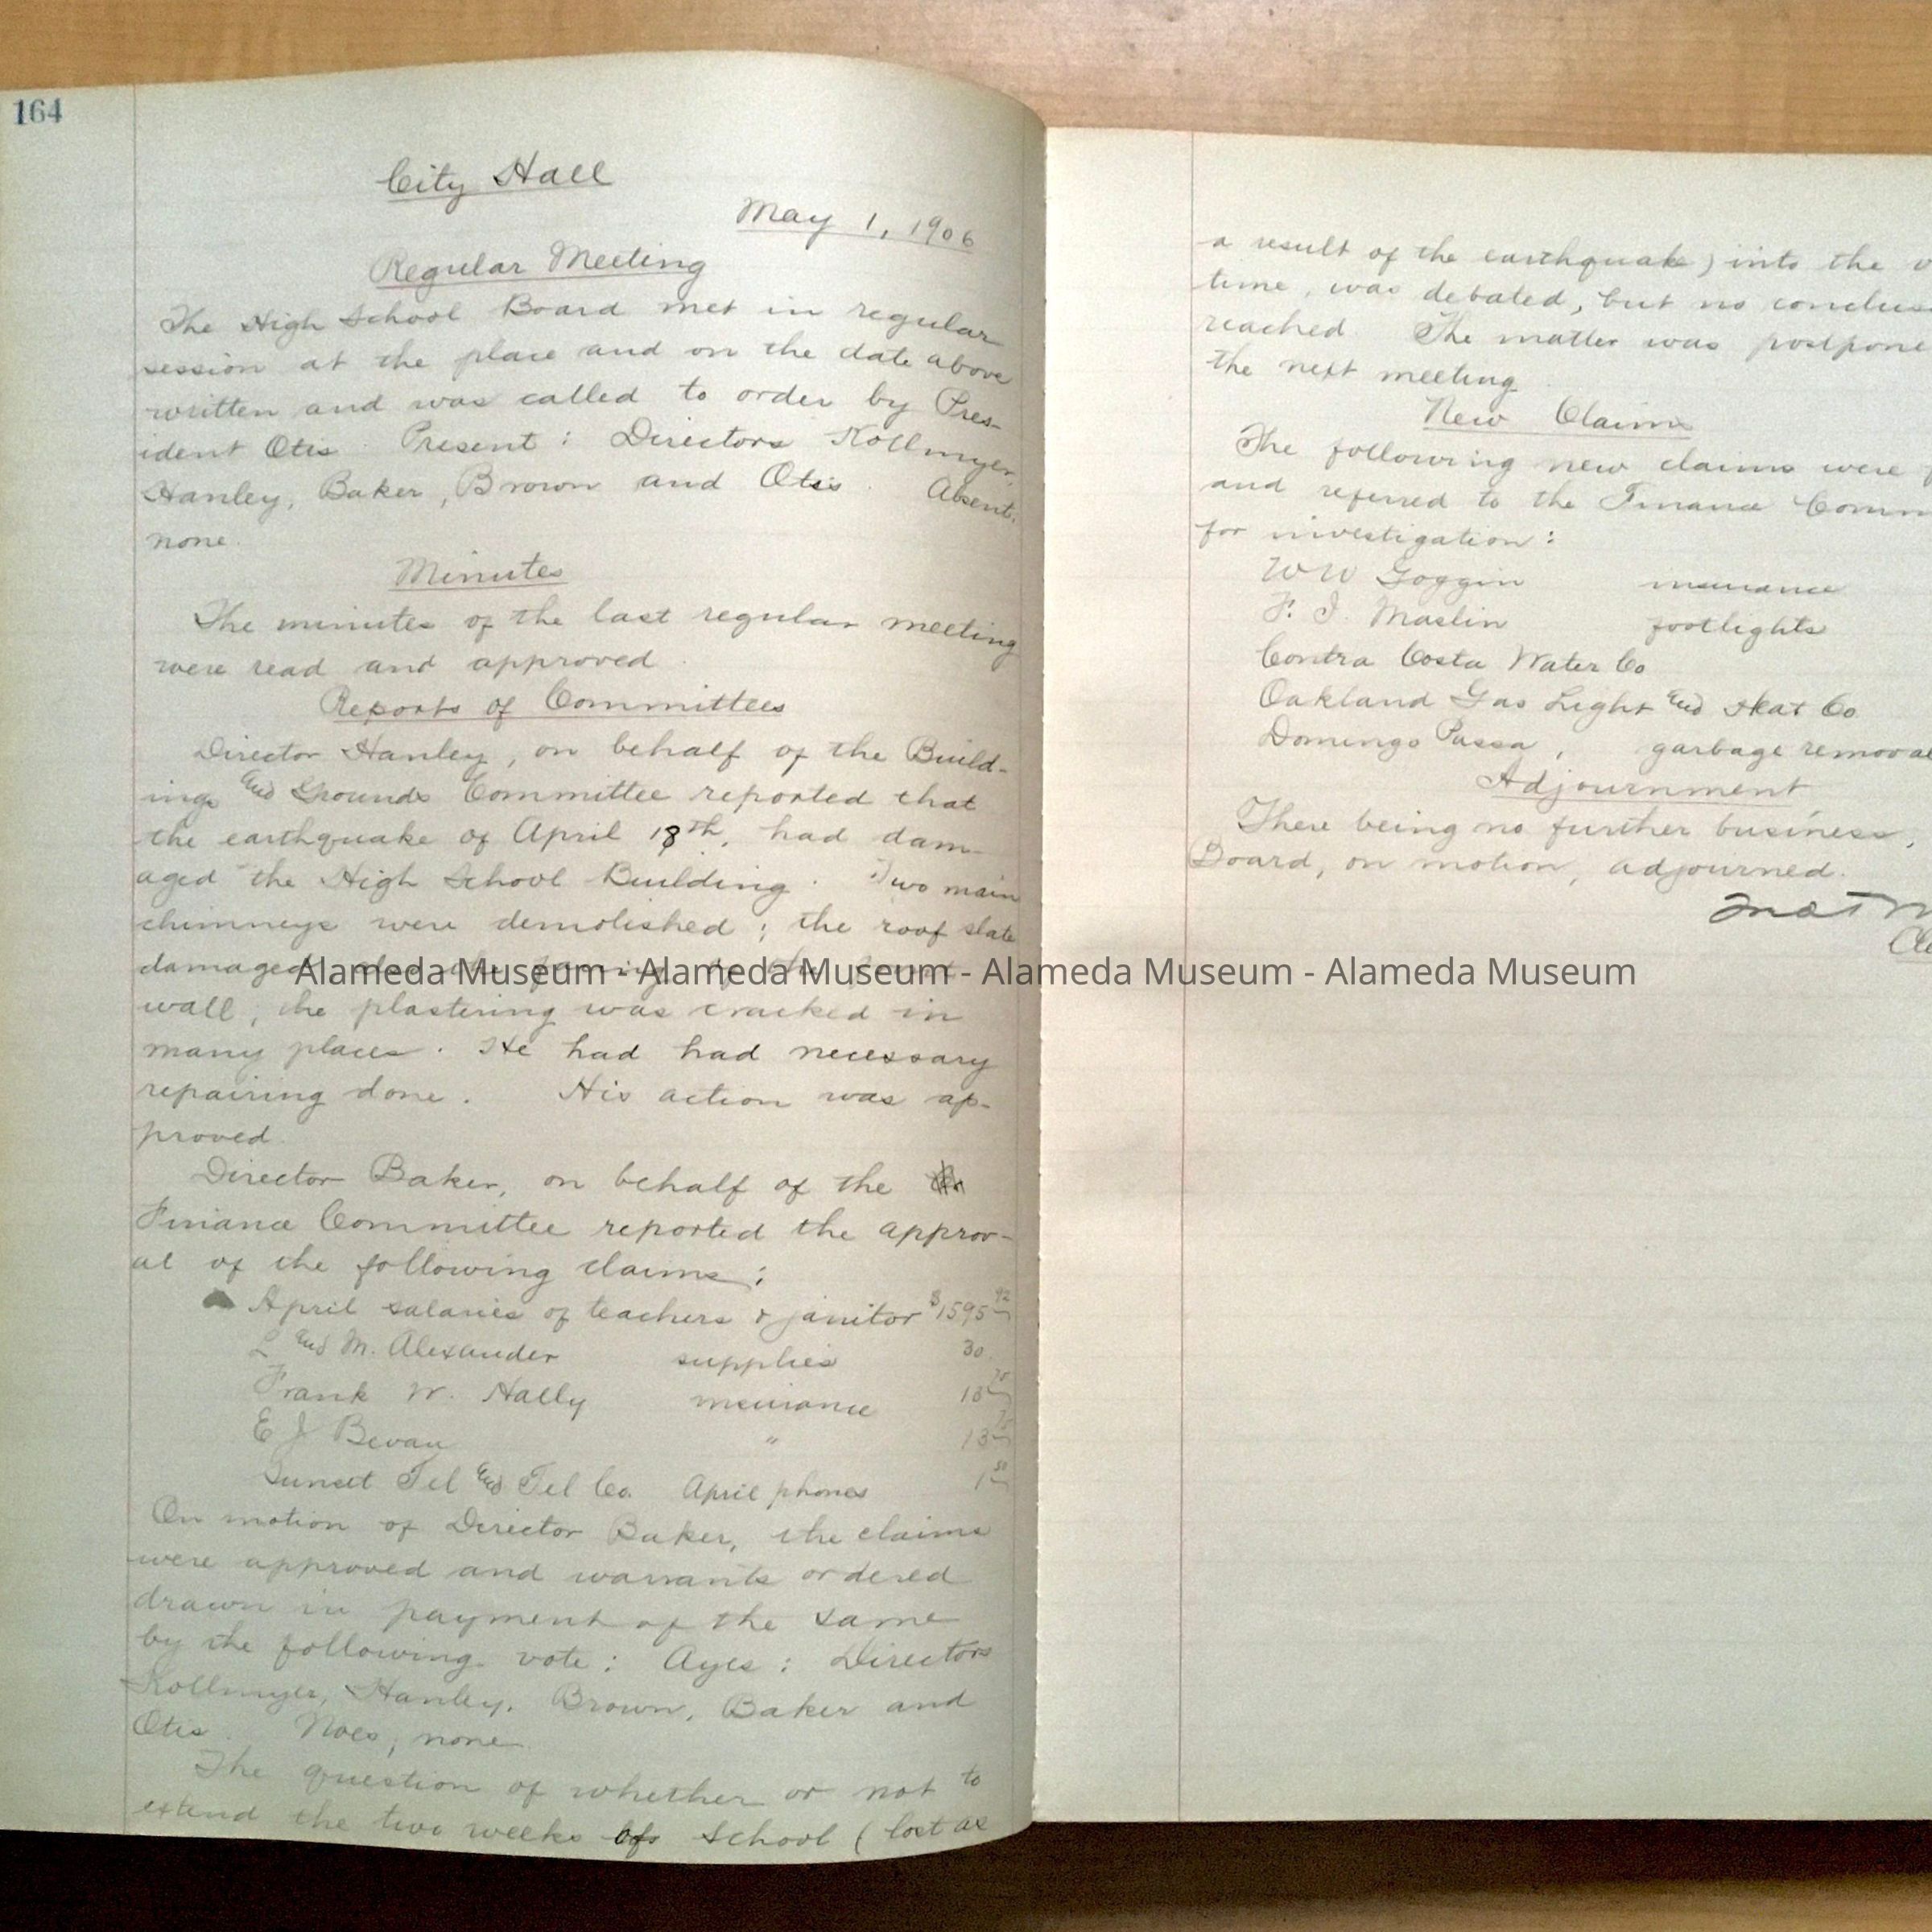 164
City Hall
May 1, 1906
Regular Meeting
The High School Board met in regular
session at the place and on the date above
written and was called to order by Pres-
ident Otis. Present: Directors Kollmyer,
Hanley, Baker, Brown and Otis. Absent:
none.
Minutes
The minutes of the last regular meeting
were read and approved.
Reports of Committees
Director Hanley, on behalf of the Build-
ings and Grounds Committee reported that
the earthquake of April 18th, had dam-
aged the High School Building. Two main
chimneys were demolished; the roof slate
damaged
Alameda Museum - Alameda Museum - Alameda Museum - Alameda Museum
wall, the plastering was cracked in
many places. He had had necessary
repairing done. His action was ap-
proved.
Director Baker, on behalf of the
Finance Committee reported the approv-
al of the following claims:
April salaries of teachers & janitor $1595 92
L and M. Alexander supplies 30
Frank W. Hally insurance
E J Bevan "
Sunset Tel and Tel Co. April phones 1 50
On motion of Director Baker, the claims
were approved and warrants ordered
drawn in payment of the same
by the following vote: Ayes: Directors
Kollmyer, Hanley, Brown, Baker and
Otis. Noes, none.
The question of whether or not to
extend the two weeks of School (lost as
a result of the earthquake) into the
time, was debated, but no conclus
reached The matter was postpone
the next meeting.
New Claims
The following new claims were
and referred to the Finance Comm
for investigation:
W W Goggin insurance
F. J. Maslin footlights
Contra Costa Water Co
Oakland Gas Light and Heat Co
Domingo Passa, garbage removal
Adjournment
There being no further business,
Board, on motion, adjourned.